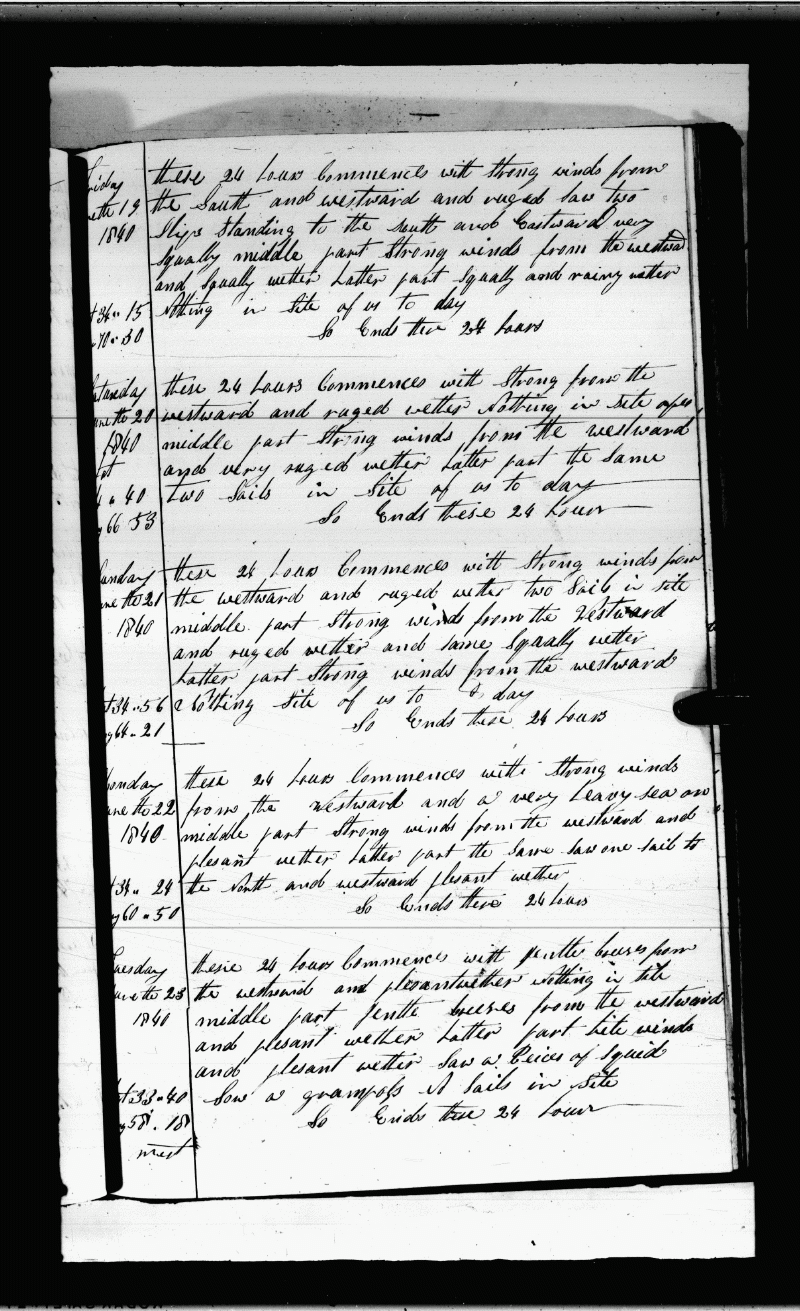 Friday
June the 19
1840
these 24 hours Commences with Strong winds from
the South and westward and ruged Saw two
Ships Standing to the south and Eastward very
Squally middle part Strong winds from the westward
and Squally wether Latter part Squally and rainy wether
Nothing in Site of us to day
So Ends these 24 hours
34 " 15
70 " 30
Saturday
June the 20
1840
these 24 hours Commences with Strong from the
westward and ruged wether Nothing in Site
middle part Strong winds from the westward
and very ruged wether Latter part the Same
two Sails in Site of us to day
So Ends these 24 hours
" 40
66 53
Sunday
June the 21
1840
these 24 hours Commences with Strong winds from
the westward and ruged wether two Sails in site
middle part Strong winds from the Westward
and ruged wether and same Squally wether
Latter part Strong winds from the westward
Nothing Site of us to day
So Ends these 24 hours
34 " 56
64 " 21
Monday
June the 22
1840
these 24 hours Commences with Strong winds
from the Westward and a very heavy sea on
middle part Strong winds from the westward and
plesant wether Latter part the Same saw one sail to
the North and westward plesant wether
So Ends these 24 hours
34 " 24
60 " 50
Tuesday
June the 23
1840
these 24 hours Commences with jentle breeses from
the westward and plesant wether Nothing in site
middle part jentle breeses from the westward
and plesant wether Latter part Lite winds
and plesant wether Saw a Peices of Squid
Sow a gramposs A Sails in Site
So Ends these 24 hours
33 " 40
58 " 18
west